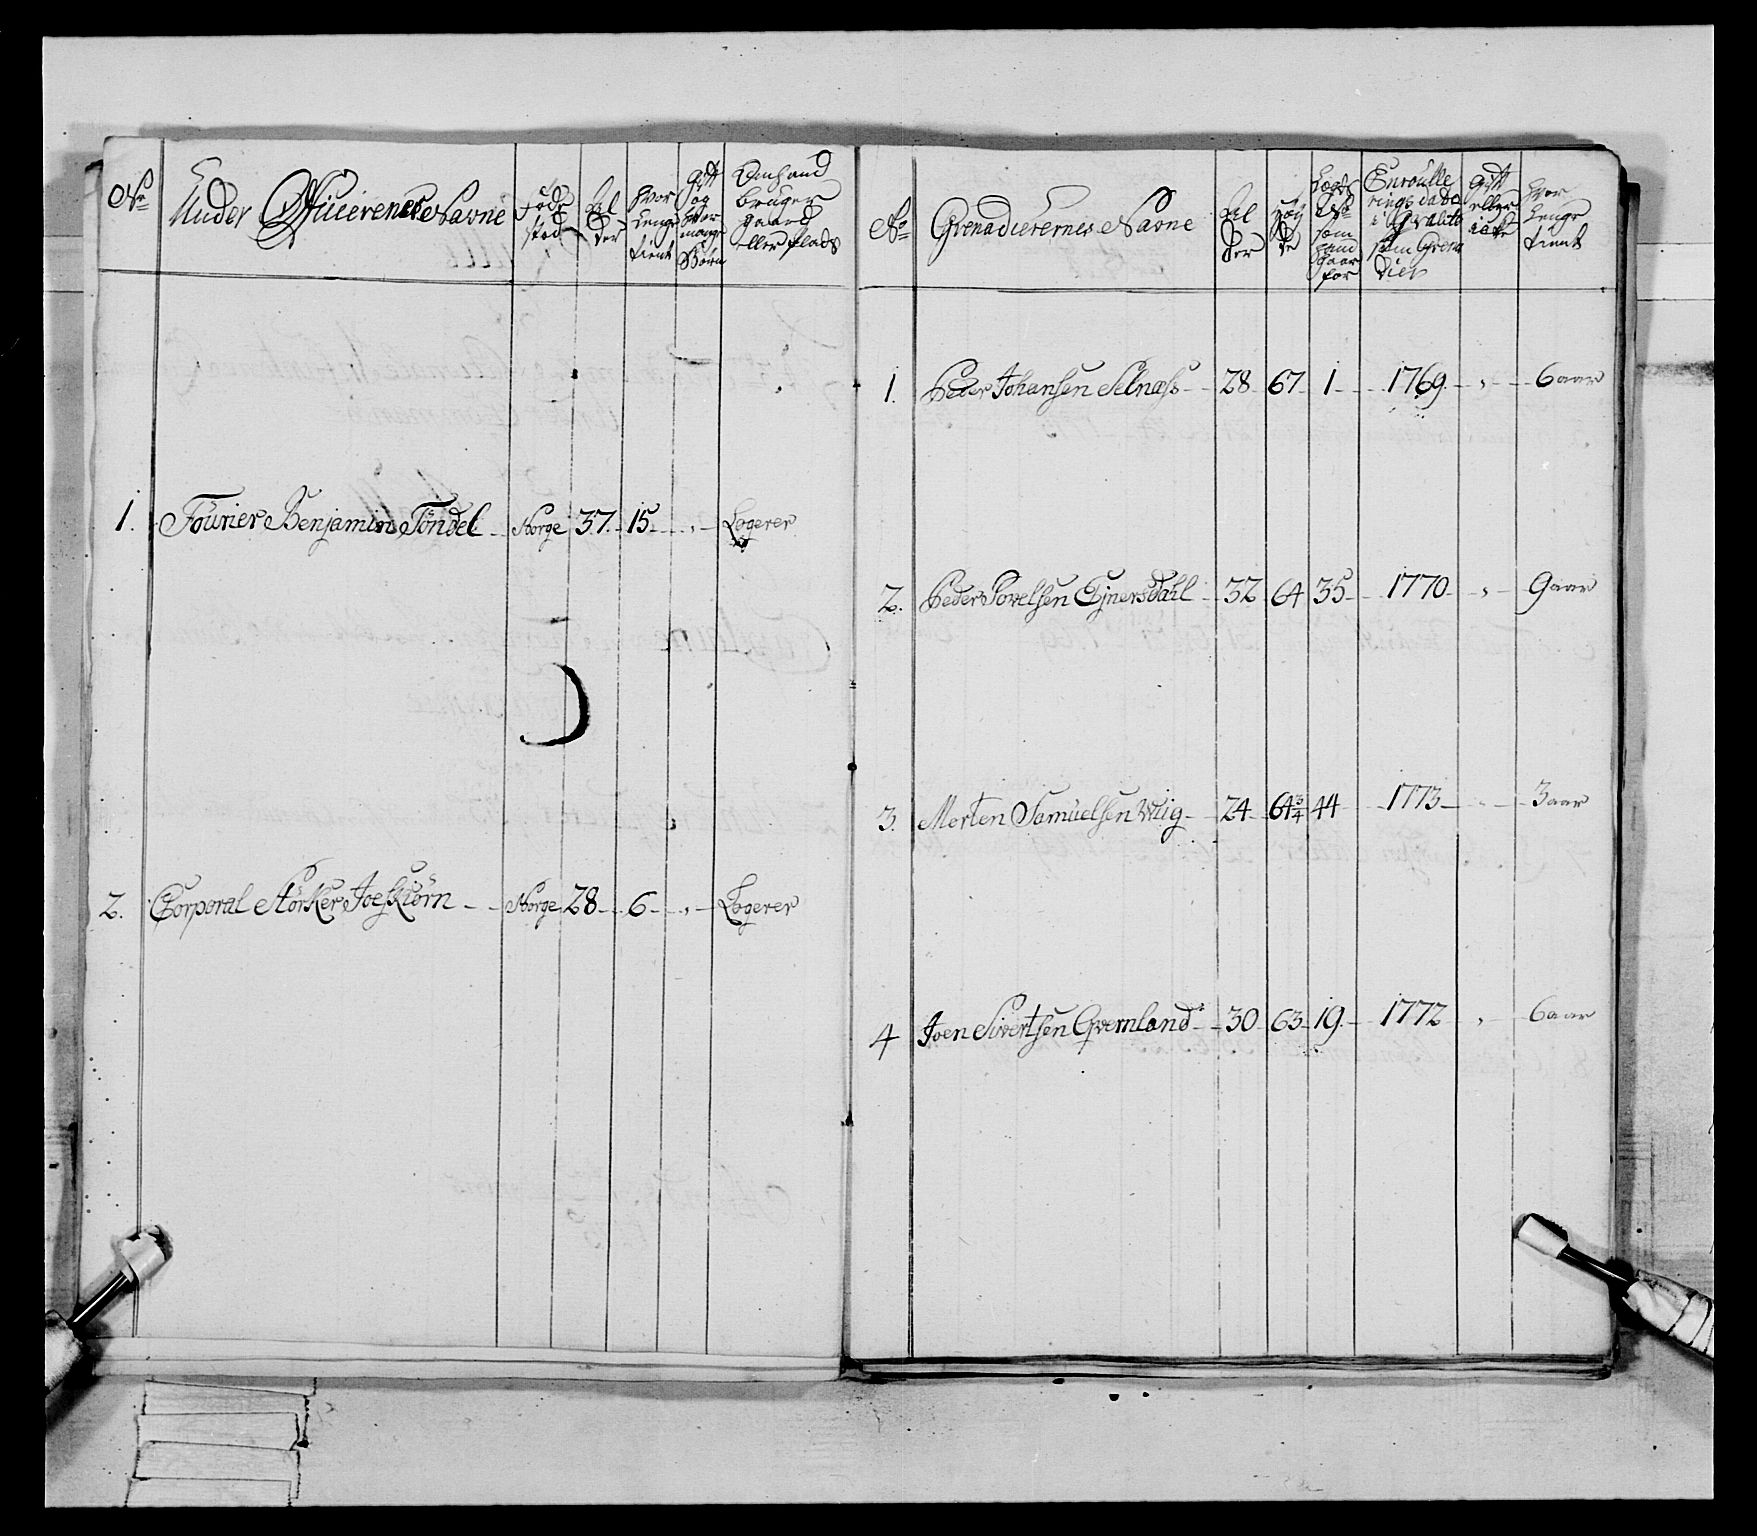 No
Under Officerenes Navne
Føde
sted
Al
der
Hvor
Lenge
tient
Gift
og
Hvor
mange
Børn
Om hand
bruger
gaard
eller Plads
1. Fourier Benjamin Tøndel Norge 37. 15. „ Logerer
2. Corporal Størker Joeskiørn Norge 28 6 „ Logerer
No
Grenadierernes Navne
Al
der
Høy
de
Lægds
No
som
hand
staar
for
Enroulle
rings dato
i Qvalite
som Grena
dier
Gift
eller
icke
Hvor
Lenge
tient
1. Peder Johansen Selnæss 28 67 1 1769 „ 6 aar
2. Peder Povelsen Ejnersdahl 32 64 35 1770 „ 9 aar
3. Merten Samuelsen Wiig 24 64 3/4 44 1773 „ 3 aar
4 Joen Sivertsen Qvernland 30 63 19 1772 „ 6 aar